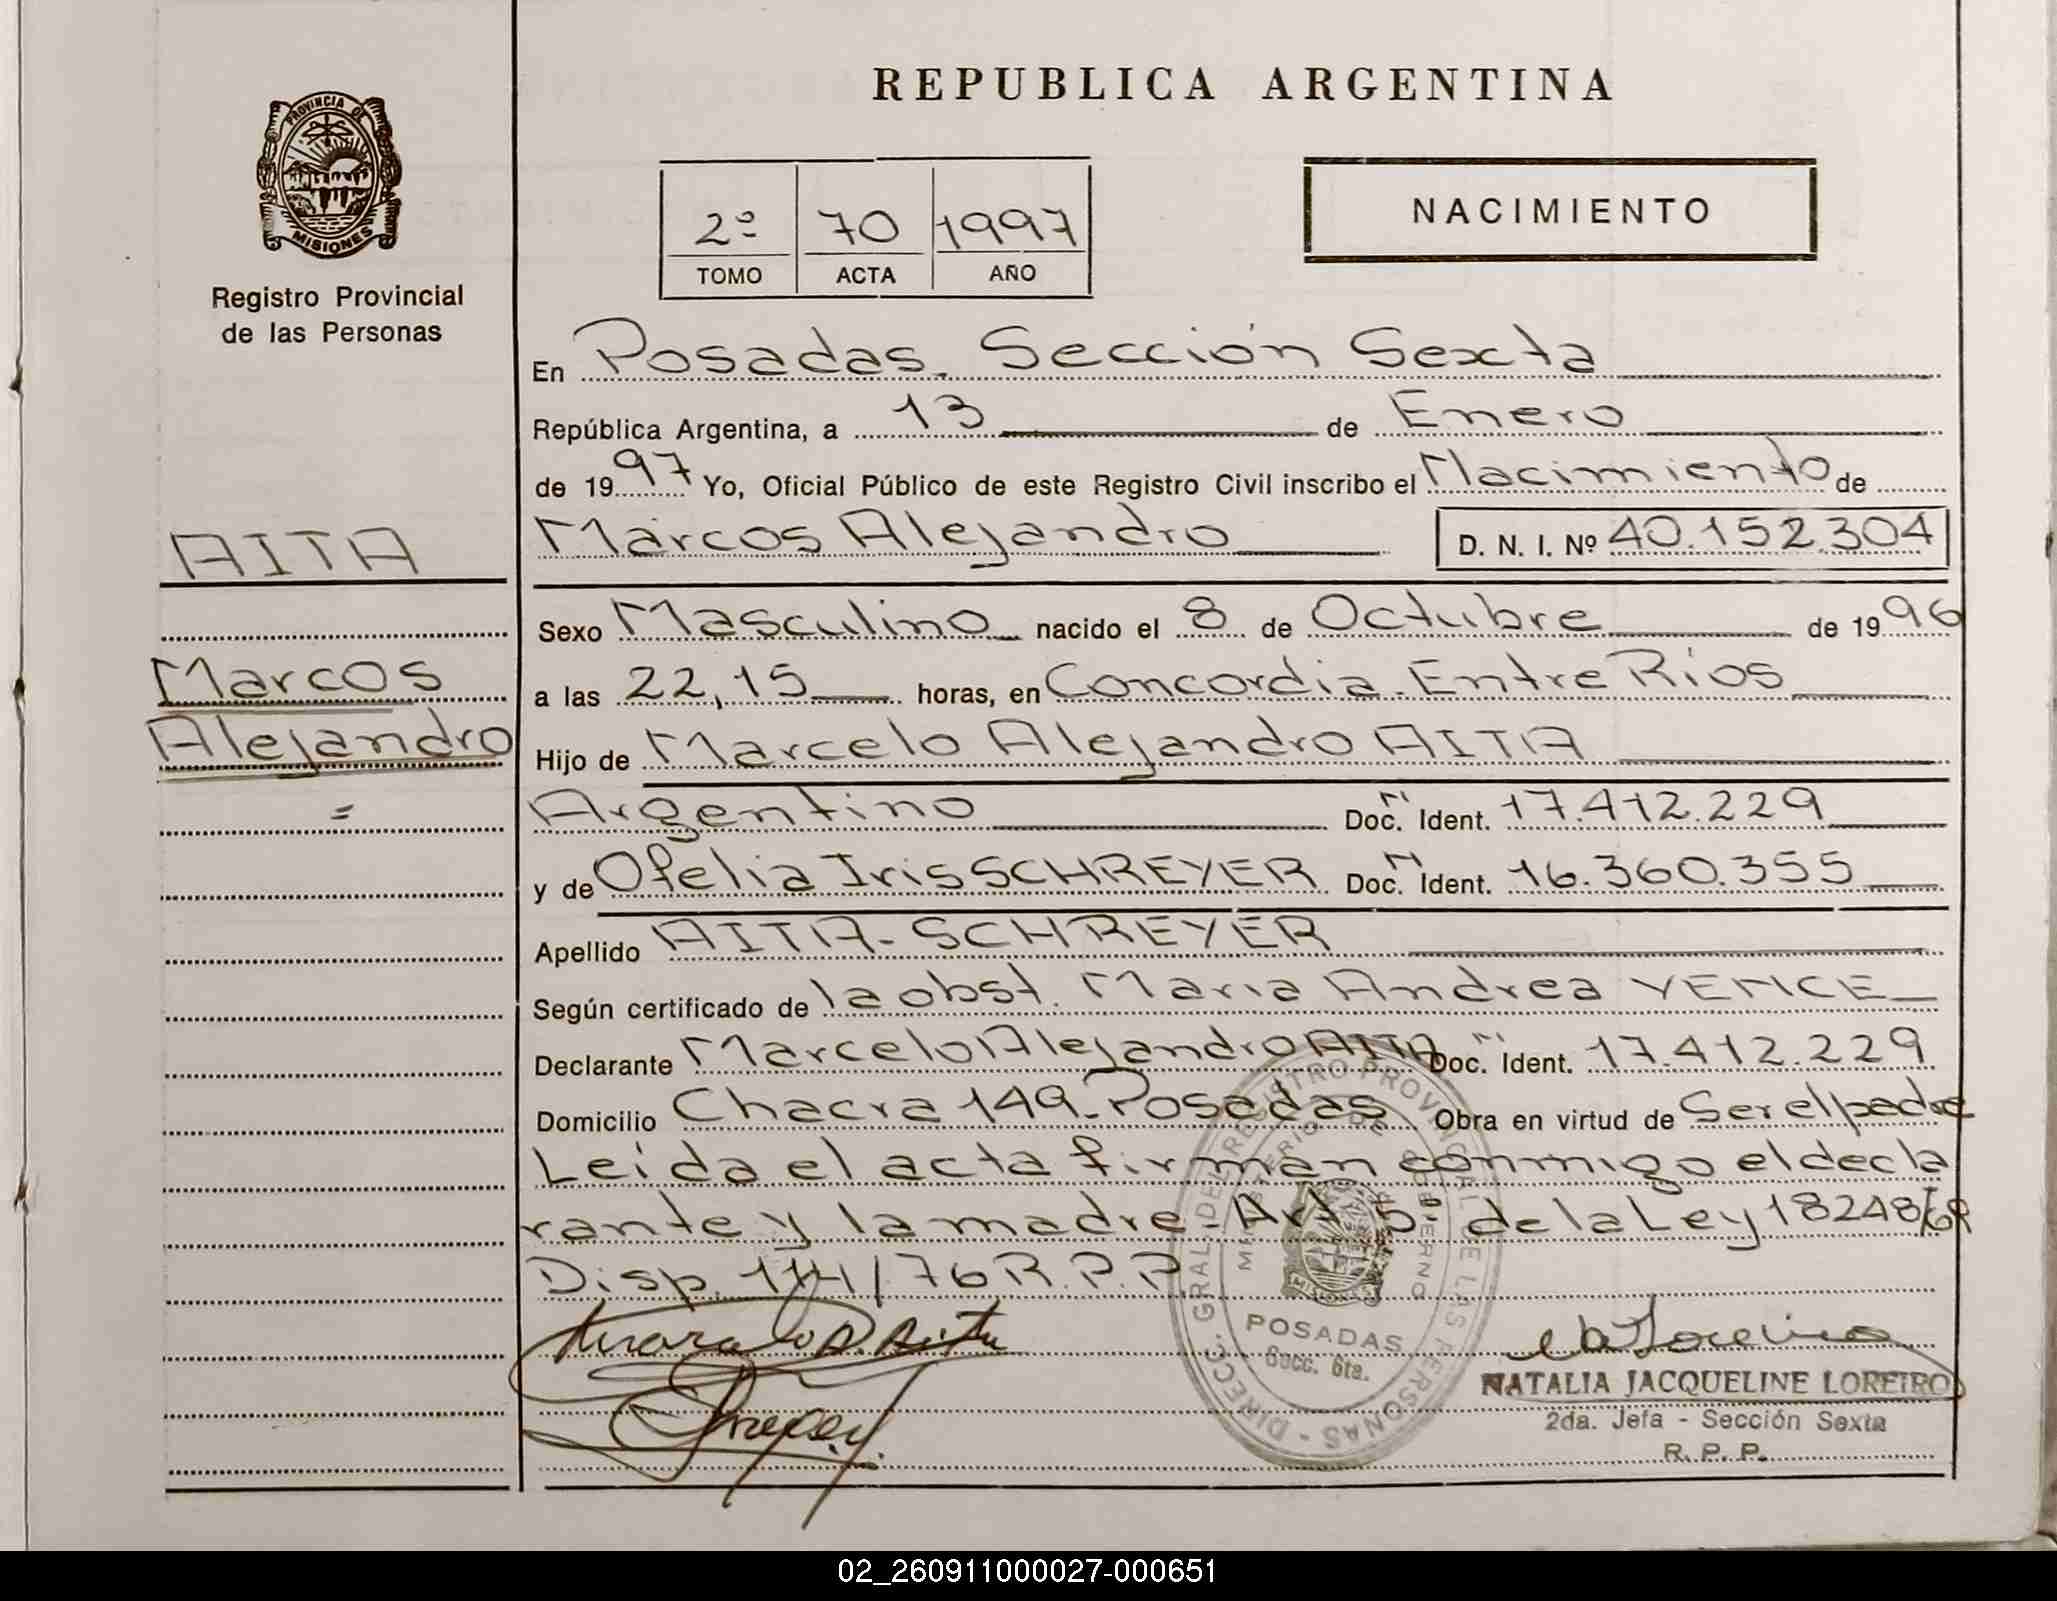 REPUBLICA ARGENTINA
PROVINCIA DE
MISIONES
Registro Provincial
de las Personas
2º 70 1997
TOMO ACTA AÑO
NACIMIENTO
En Posadas. Sección Sexta
República Argentina, a 13 de Enero
de 1997 Yo, Oficial Público de este Registro Civil inscribo el Nacimiento de
AITA
Marcos Alejandro D. N. I. Nº 40.152.304
Sexo Masculino nacido el 8 de Octubre de 1996
Marcos
a las 22,15 horas, en Concordia. Entre Ríos
Alejandro
Hijo de Marcelo Alejandro AITA
=
Argentino Doc. N. Ident. 17.412.229
y de Ofelia Iris SCHREYER Doc. N. Ident. 16.360.355
Apellido AITA-SCHREYER
Según certificado de la obst. Maria Andrea
Declarante Marcelo Alejandro AITA Doc. N. Ident. 17.412.229
Domicilio Chacra 149-Posadas Obra en virtud de Ser el padre
Leida el acta firman conmigo el decla
rante y la madre. Art 5º de la Ley 18248/69
Disp. /76 R.P.P.
DIRECC. GRAL. DEL REGISTRO PROVINCIAL DE LAS PERSONAS
MINISTERIO DE GOBIERNO
MISIONES
POSADAS
Secc. 6ta.
NATALIA JACQUELINE LOREIRO
2da. Jefa - Sección Sexta
R. P. P.
02_260911000027-000651